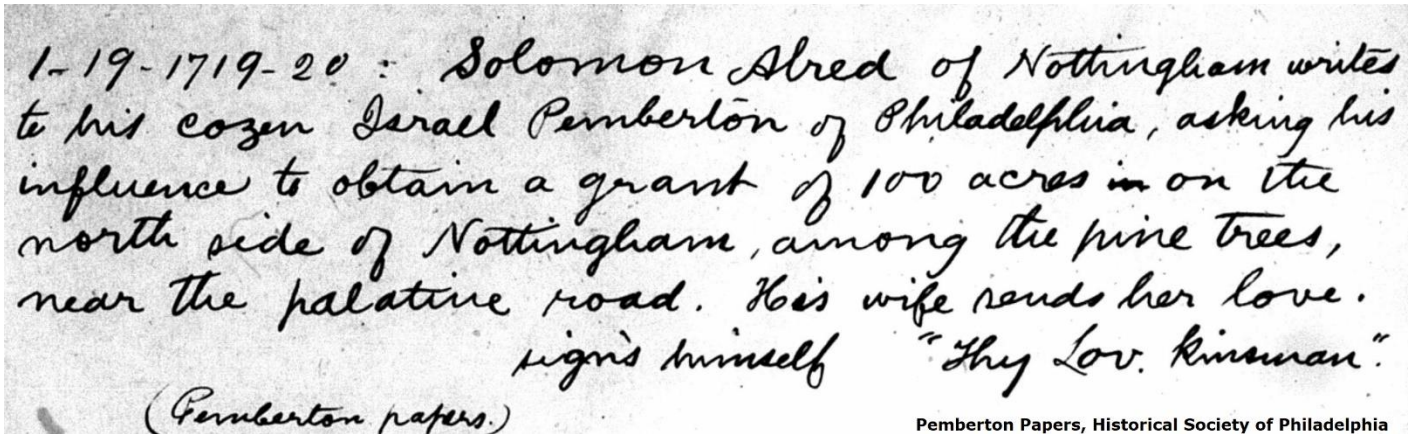 1-19-1719-20 : Solomon Alred of Nottingham writes
to his cozen Israel Pemberton of Philadelphia, asking his
influence to obtain a grant of 100 acres in on the
north side of Nottingham, among the pine trees,
near the palatine road. His wife sends her love.
signs himself "Thy Lov. Kinsman".
(Pemberton papers.)
Pemberton Papers, Historical Society of Philadelphia